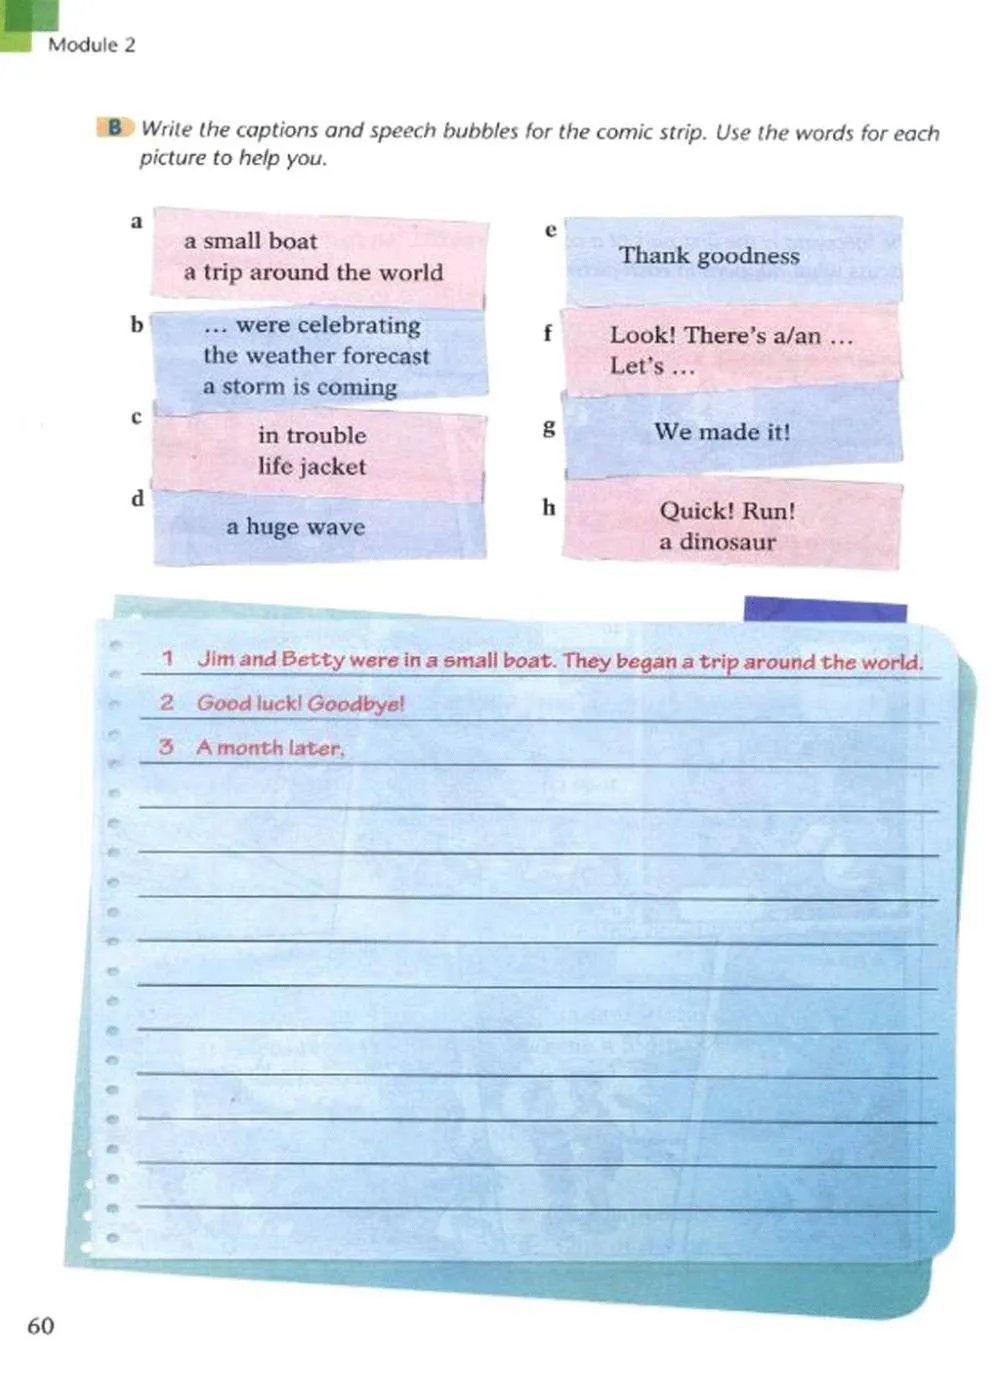 Module 2
B Write the captions and speech bubbles for the comic strip. Use the words for each
picture to help you.
a
a small boat
a trip around the world
b
... were celebrating
the weather forecast
a storm is coming
c
in trouble
life jacket
d
a huge wave
e
Thank goodness
f
Look! There's a/an ...
Let's ...
g
We made it!
h
Quick! Run!
a dinosaur
1 Jim and Betty were in a small boat. They began a trip around the world.
2 Good luck! Goodbye!
3 A month later,
60